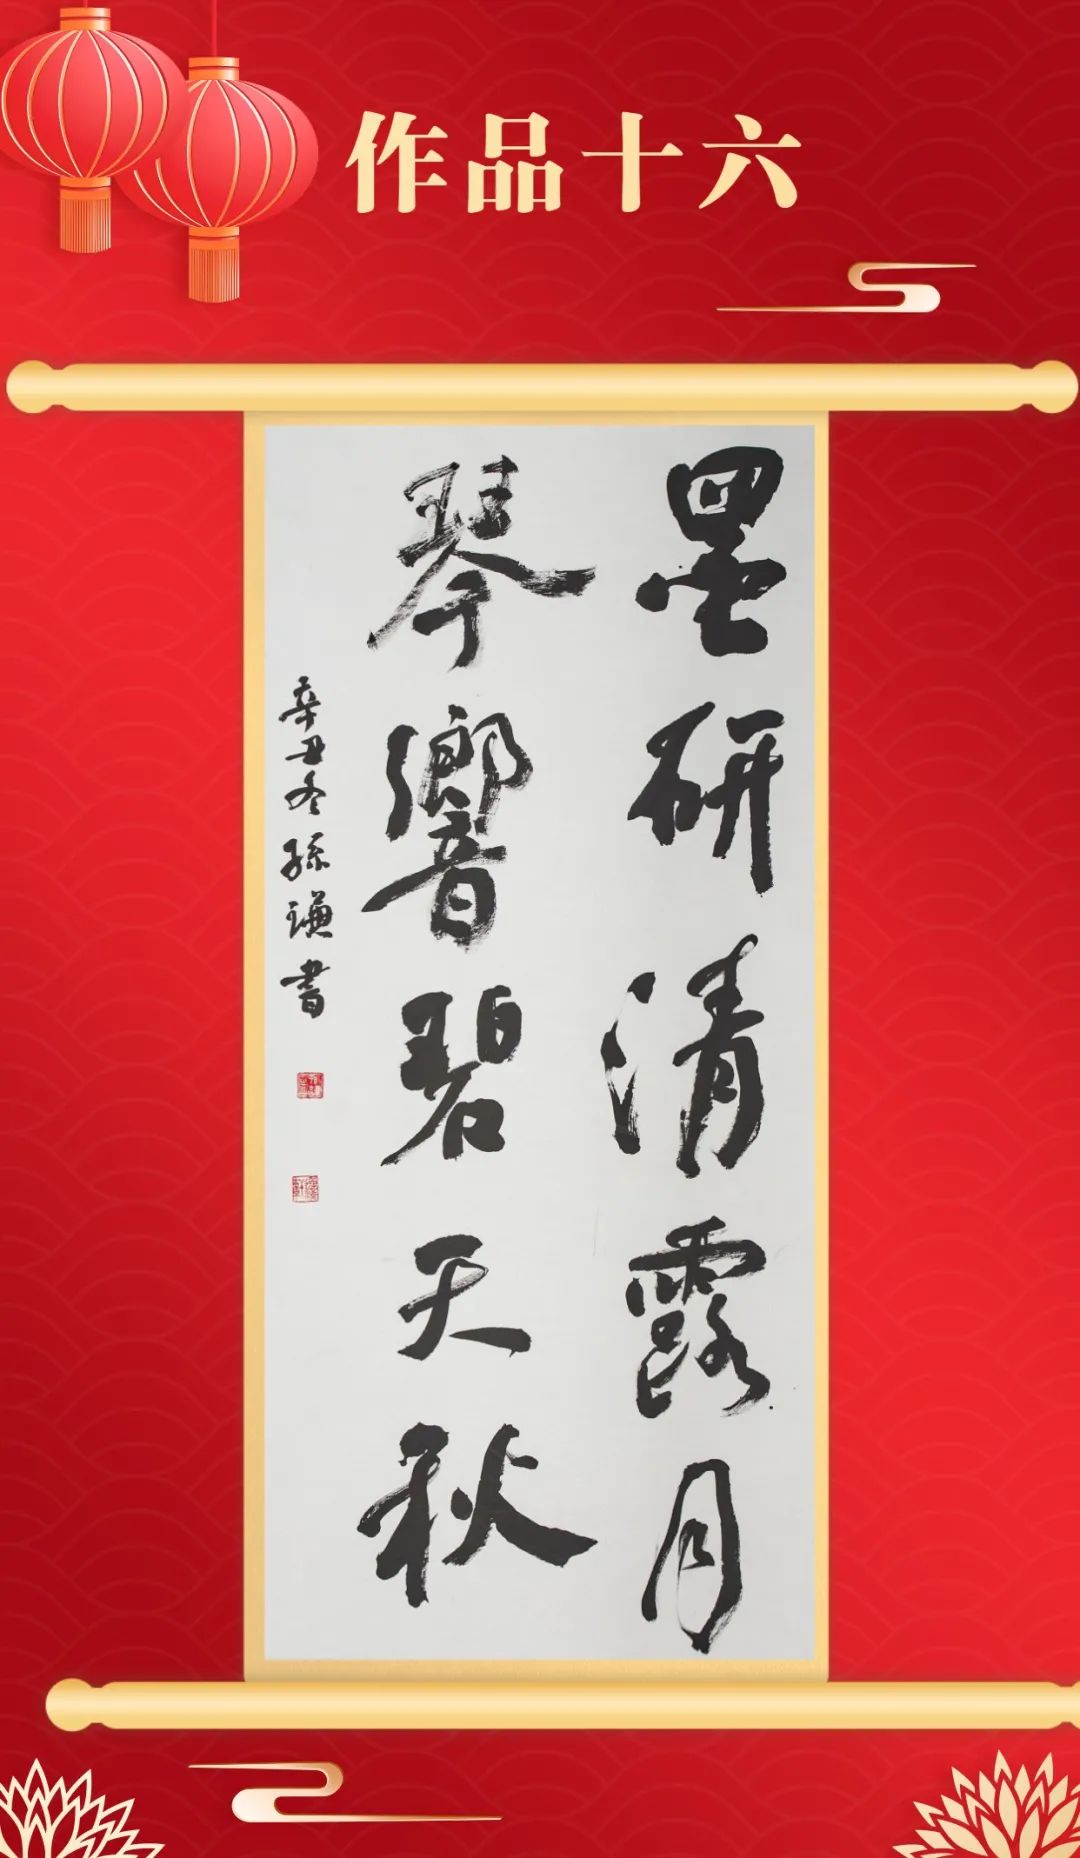 作品十六
墨研清露月
琴響碧天秋
辛丑冬孫謙書